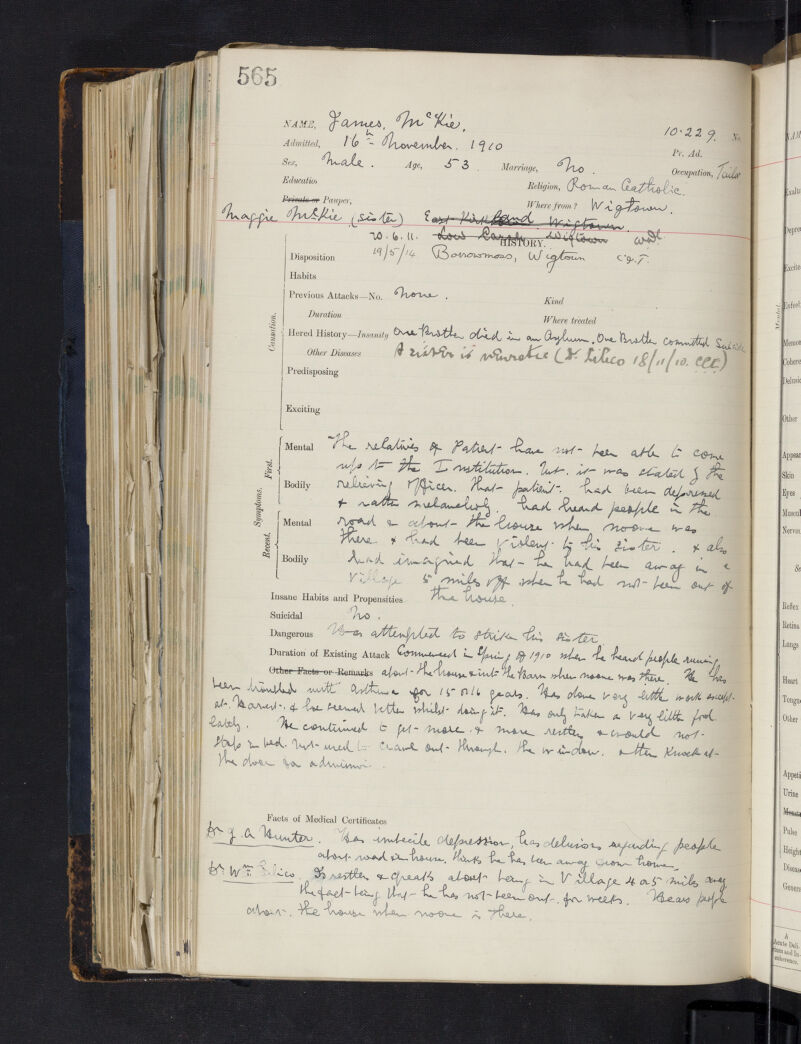 565
NAME, James, McKie.
10.229. No.
Admitted, 16th November. 1910
Pr. Ad.
Sex, Male. Age, 53. Marriage, No. Occupation, Tailor
Education Religion, Roman Catholic.
Private or Pauper, Where from? Wigtown.
Maggie McKie, (sister) East Kirkland. Wigtown.
20.6.11. Low Wigtown
HISTORY.
Disposition 19/5/14 Borrowmoss, Wigtown
Habits
Previous Attacks—No. None. Kind
Duration Where treated
Hered History—Insanity One Brother died in an Asylum. One Brother committed Suicide
Other Diseases A sister is neurotic (Dr. Lilico 18/11/10.
Predisposing
Exciting
Causation.
Symptoms. First. Recent.
Mental The relatives of Patient have not been able to come
up to the Institution. but it was stated by the
Bodily relieving officer. that patient had been depressed
& rather melancholy. had heard people in the
Mental road & about the house when no one was
there & had been violent to his sister. & also
Bodily had imagined that he had been away in a
Village 5 miles off when he had not been out of
Insane Habits and Propensities the house.
Suicidal No.
Dangerous Has attempted to strike his sister
Duration of Existing Attack Commenced in Spring of 1910 when he heard people running
Other Facts or Remarks about the house & into the Barn when no one was there. He has
been troubled with asthma for 15 or 16 years. Has done very little work except
at Harvest. & he seemed better whilst doing it. Has only taken a very little food
lately. He continued to get more & more restless & would not
stop in bed. but used to crawl out through. the window. & then knock at
the door for
Facts of Medical Certificates
Dr J. A Hunter. Has imbecile depression, has delusions regarding people
about road & in house. thinks he has been away from home.
Dr Wm Lilico. Is restless & speaks about being in Village 4 or 5 miles away
the fact being that he has not been out. for weeks. Hears people
about. the house when no one is there.